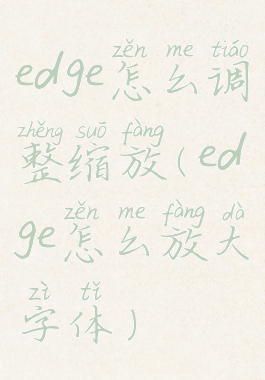 zěn me tiáo
edge怎么调
zhěng suō fàng
整缩放(ed
zěn me fàng dà
ge怎么放大
zì tǐ
字体)